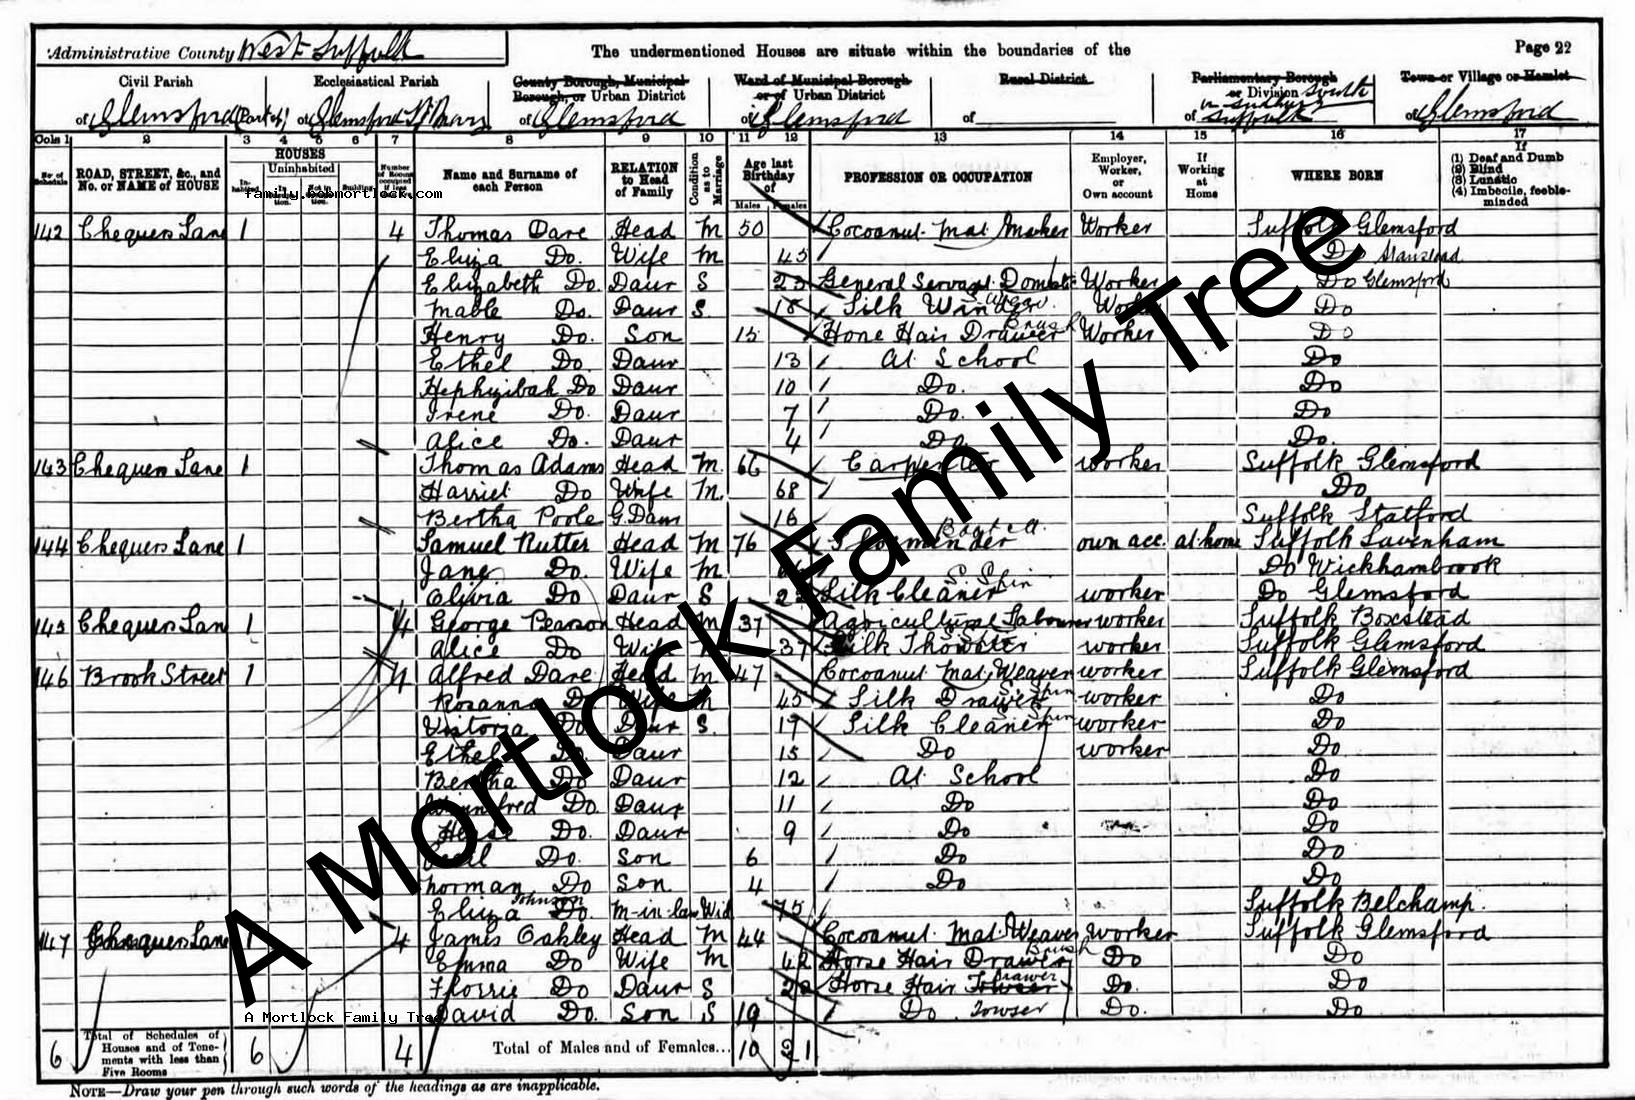 Administrative County West Suffolk
The undermentioned Houses are situate within the boundaries of the
Page 22
Civil Parish
of Glemsford (Part of)
Ecclesiastical Parish
of Glemsford St Mary
County Borough, Municipal
Borough, or Urban District
of Glemsford
Ward of Municipal Borough
or of Urban District
of Glemsford
Rural District
of
Parliamentary Borough
or Division South
Suffolk
Town or Village or Hamlet
of Glemsford
Cols 1 2 3 4 5 6 7 8 9 10 11 12 13 14 15 16 17
No. of Schedule
ROAD, STREET, &c., and No. or NAME of HOUSE
HOUSES
Uninhabited
Name and Surname of each Person
RELATION to Head of Family
Condition as to Marriage
Age last Birthday of
Males Females
PROFESSION OR OCCUPATION
Employer, Worker, or Own account
If Working at Home
WHERE BORN
If
(1) Deaf and Dumb
(2) Blind
(3) Lunatic
(4) Imbecile, feeble-minded
family.bobmortlock.com
142 Chequers Lane 1 4 Thomas Dare Head M 50 Cocoanut Mat Maker Worker Suffolk Glemsford
Eliza Do. Wife M 45 Do Stanstead
Elizabeth Do. Daur S 23 General Servant Domestic Worker Do Glemsford
Mable Do. Daur S 18 Silk Winder Worker Do
Henry Do. Son 15 Horse Hair Drawer Brush Worker Do
Ethel Do. Daur 13 At School Do
Hephzibah Do Daur 10 Do. Do
Irene Do. Daur 7 Do. Do
Alice Do. Daur 4 Do Do.
143 Chequers Lane 1 Thomas Adams Head M. 66 Carpenter worker Suffolk Glemsford
Harriet Do Wife M. 68 Do
Bertha Poole G. Daur 16 Suffolk Statford
144 Chequers Lane 1 Samuel Nutter Head M 76 own acc. at home Suffolk Lavenham
Jane Do. Wife M Do Wickhambrook
Olivia Do Daur S Silk Cleaner worker Do Glemsford
145 Chequers Lane 1 4 George Pearson Head M 37 Agricultural Labourer worker Suffolk Boxstead
Alice Do Wife 37 Silk Throwster worker Suffolk Glemsford
146 Brook Street 1 4 Alfred Dare Head M 47 Cocoanut Mat Weaver worker Suffolk Glemsford
Rosanna Do Wife M 45 Silk Drawer worker Do
Victoria Do Daur S. 17 Silk Cleaner worker Do
Ethel Do Daur 15 Do worker Do
Bertha Do Daur 12 At School Do
Winnifred Do Daur 11 Do Do
Do. Daur 9 Do Do
Cecil Do. Son 6 Do Do
Norman Do Son 4 Do Do
Eliza Johnson Do. M-in-law Wid 75 Suffolk Belchamp.
147 Chequers Lane 1 4 James Oakley Head M 44 Cocoanut Mat Weaver Worker Suffolk Glemsford
Emma Do Wife M 42 Horse Hair Drawer Brush Do Do
Florrie Do Daur S 22 Horse Hair Towser Drawer Do. Do
David Do. Son S 19 Do Towser Do. Do
A Mortlock Family Tree
A Mortlock Family Tree
6 Total of Schedules of Houses and of Tenements with less than Five Rooms 6 4 Total of Males and of Females... 10 21
NOTE—Draw your pen through such words of the headings as are inapplicable.